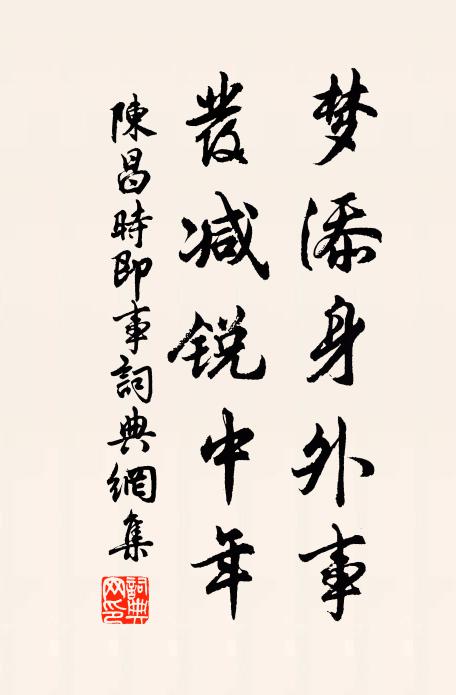 梦添身外事
發减锐中年
陳昌時即事詞典網集
詞典网印